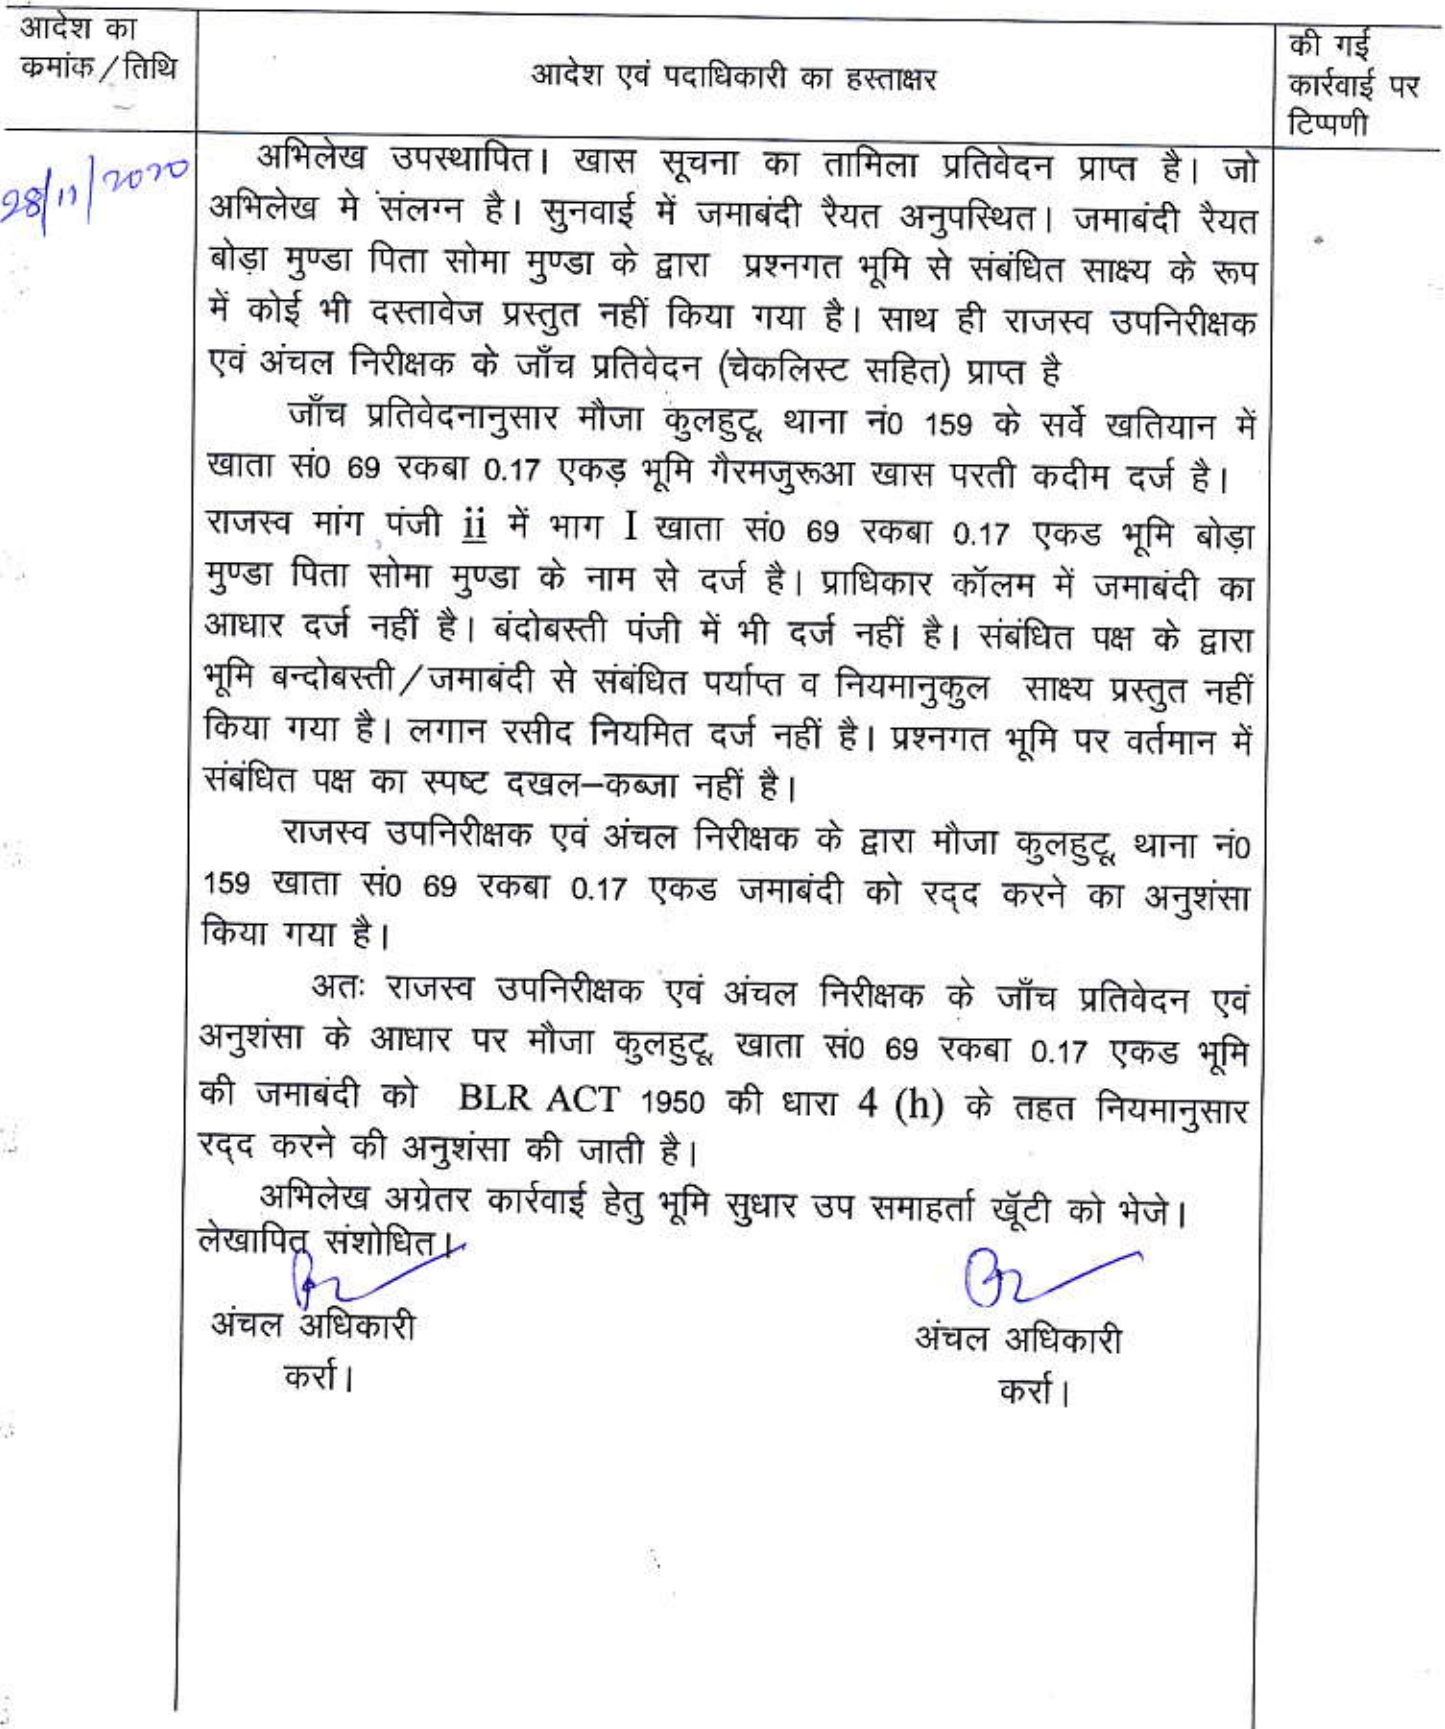 आदेश का
कमांक/तिथि
आदेश एवं पदाधिकारी का हस्ताक्षर
की गई
कार्रवाई पर
टिप्पणी
28/11/2020
अभिलेख उपस्थापित। खास सूचना का तामिला प्रतिवेदन प्राप्त है। जो
अभिलेख मे संलग्न है। सुनवाई में जमाबंदी रैयत अनुपस्थित। जमाबंदी रैयत
बोड़ा मुण्डा पिता सोमा मुण्डा के द्वारा प्रश्नगत भूमि से संबंधित साक्ष्य के रूप
में कोई भी दस्तावेज प्रस्तुत नहीं किया गया है। साथ ही राजस्व उपनिरीक्षक
एवं अंचल निरीक्षक के जाँच प्रतिवेदन (चेकलिस्ट सहित) प्राप्त है
जाँच प्रतिवेदनानुसार मौजा कुलहुटू, थाना नं0 159 के सर्वे खतियान में
खाता सं0 69 रकबा 0.17 एकड़ भूमि गैरमजुरूआ खास परती कदीम दर्ज है।
राजस्व मांग पंजी ii में भाग I खाता सं0 69 रकबा 0.17 एकड भूमि बोड़ा
मुण्डा पिता सोमा मुण्डा के नाम से दर्ज है। प्राधिकार कॉलम में जमाबंदी का
आधार दर्ज नहीं है। बंदोबस्ती पंजी में भी दर्ज नहीं है। संबंधित पक्ष के द्वारा
भूमि बन्दोबस्ती/जमाबंदी से संबंधित पर्याप्त व नियमानुकुल साक्ष्य प्रस्तुत नहीं
किया गया है। लगान रसीद नियमित दर्ज नहीं है। प्रश्नगत भूमि पर वर्तमान में
संबंधित पक्ष का स्पष्ट दखल–कब्जा नहीं है।
राजस्व उपनिरीक्षक एवं अंचल निरीक्षक के द्वारा मौजा कुलहुटू, थाना नं0
159 खाता सं0 69 रकबा 0.17 एकड जमाबंदी को रद्द करने का अनुशंसा
किया गया है।
अतः राजस्व उपनिरीक्षक एवं अंचल निरीक्षक के जाँच प्रतिवेदन एवं
अनुशंसा के आधार पर मौजा कुलहुटू, खाता सं0 69 रकबा 0.17 एकड भूमि
की जमाबंदी को BLR ACT 1950 की धारा 4 (h) के तहत नियमानुसार
रद्द करने की अनुशंसा की जाती है।
अभिलेख अग्रेतर कार्रवाई हेतु भूमि सुधार उप समाहर्ता खूँटी को भेजे।
लेखापित संशोधित।
अंचल अधिकारी
कर्रा।
अंचल अधिकारी
कर्रा।